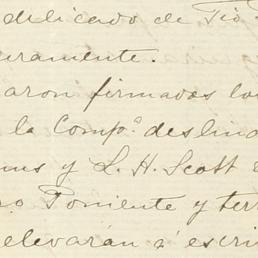 delicado de Tio
uramente.
aron firmados los
la Compª. deslind
mus y L. H. Scott
ro Poniente y terr
elevarán á escri